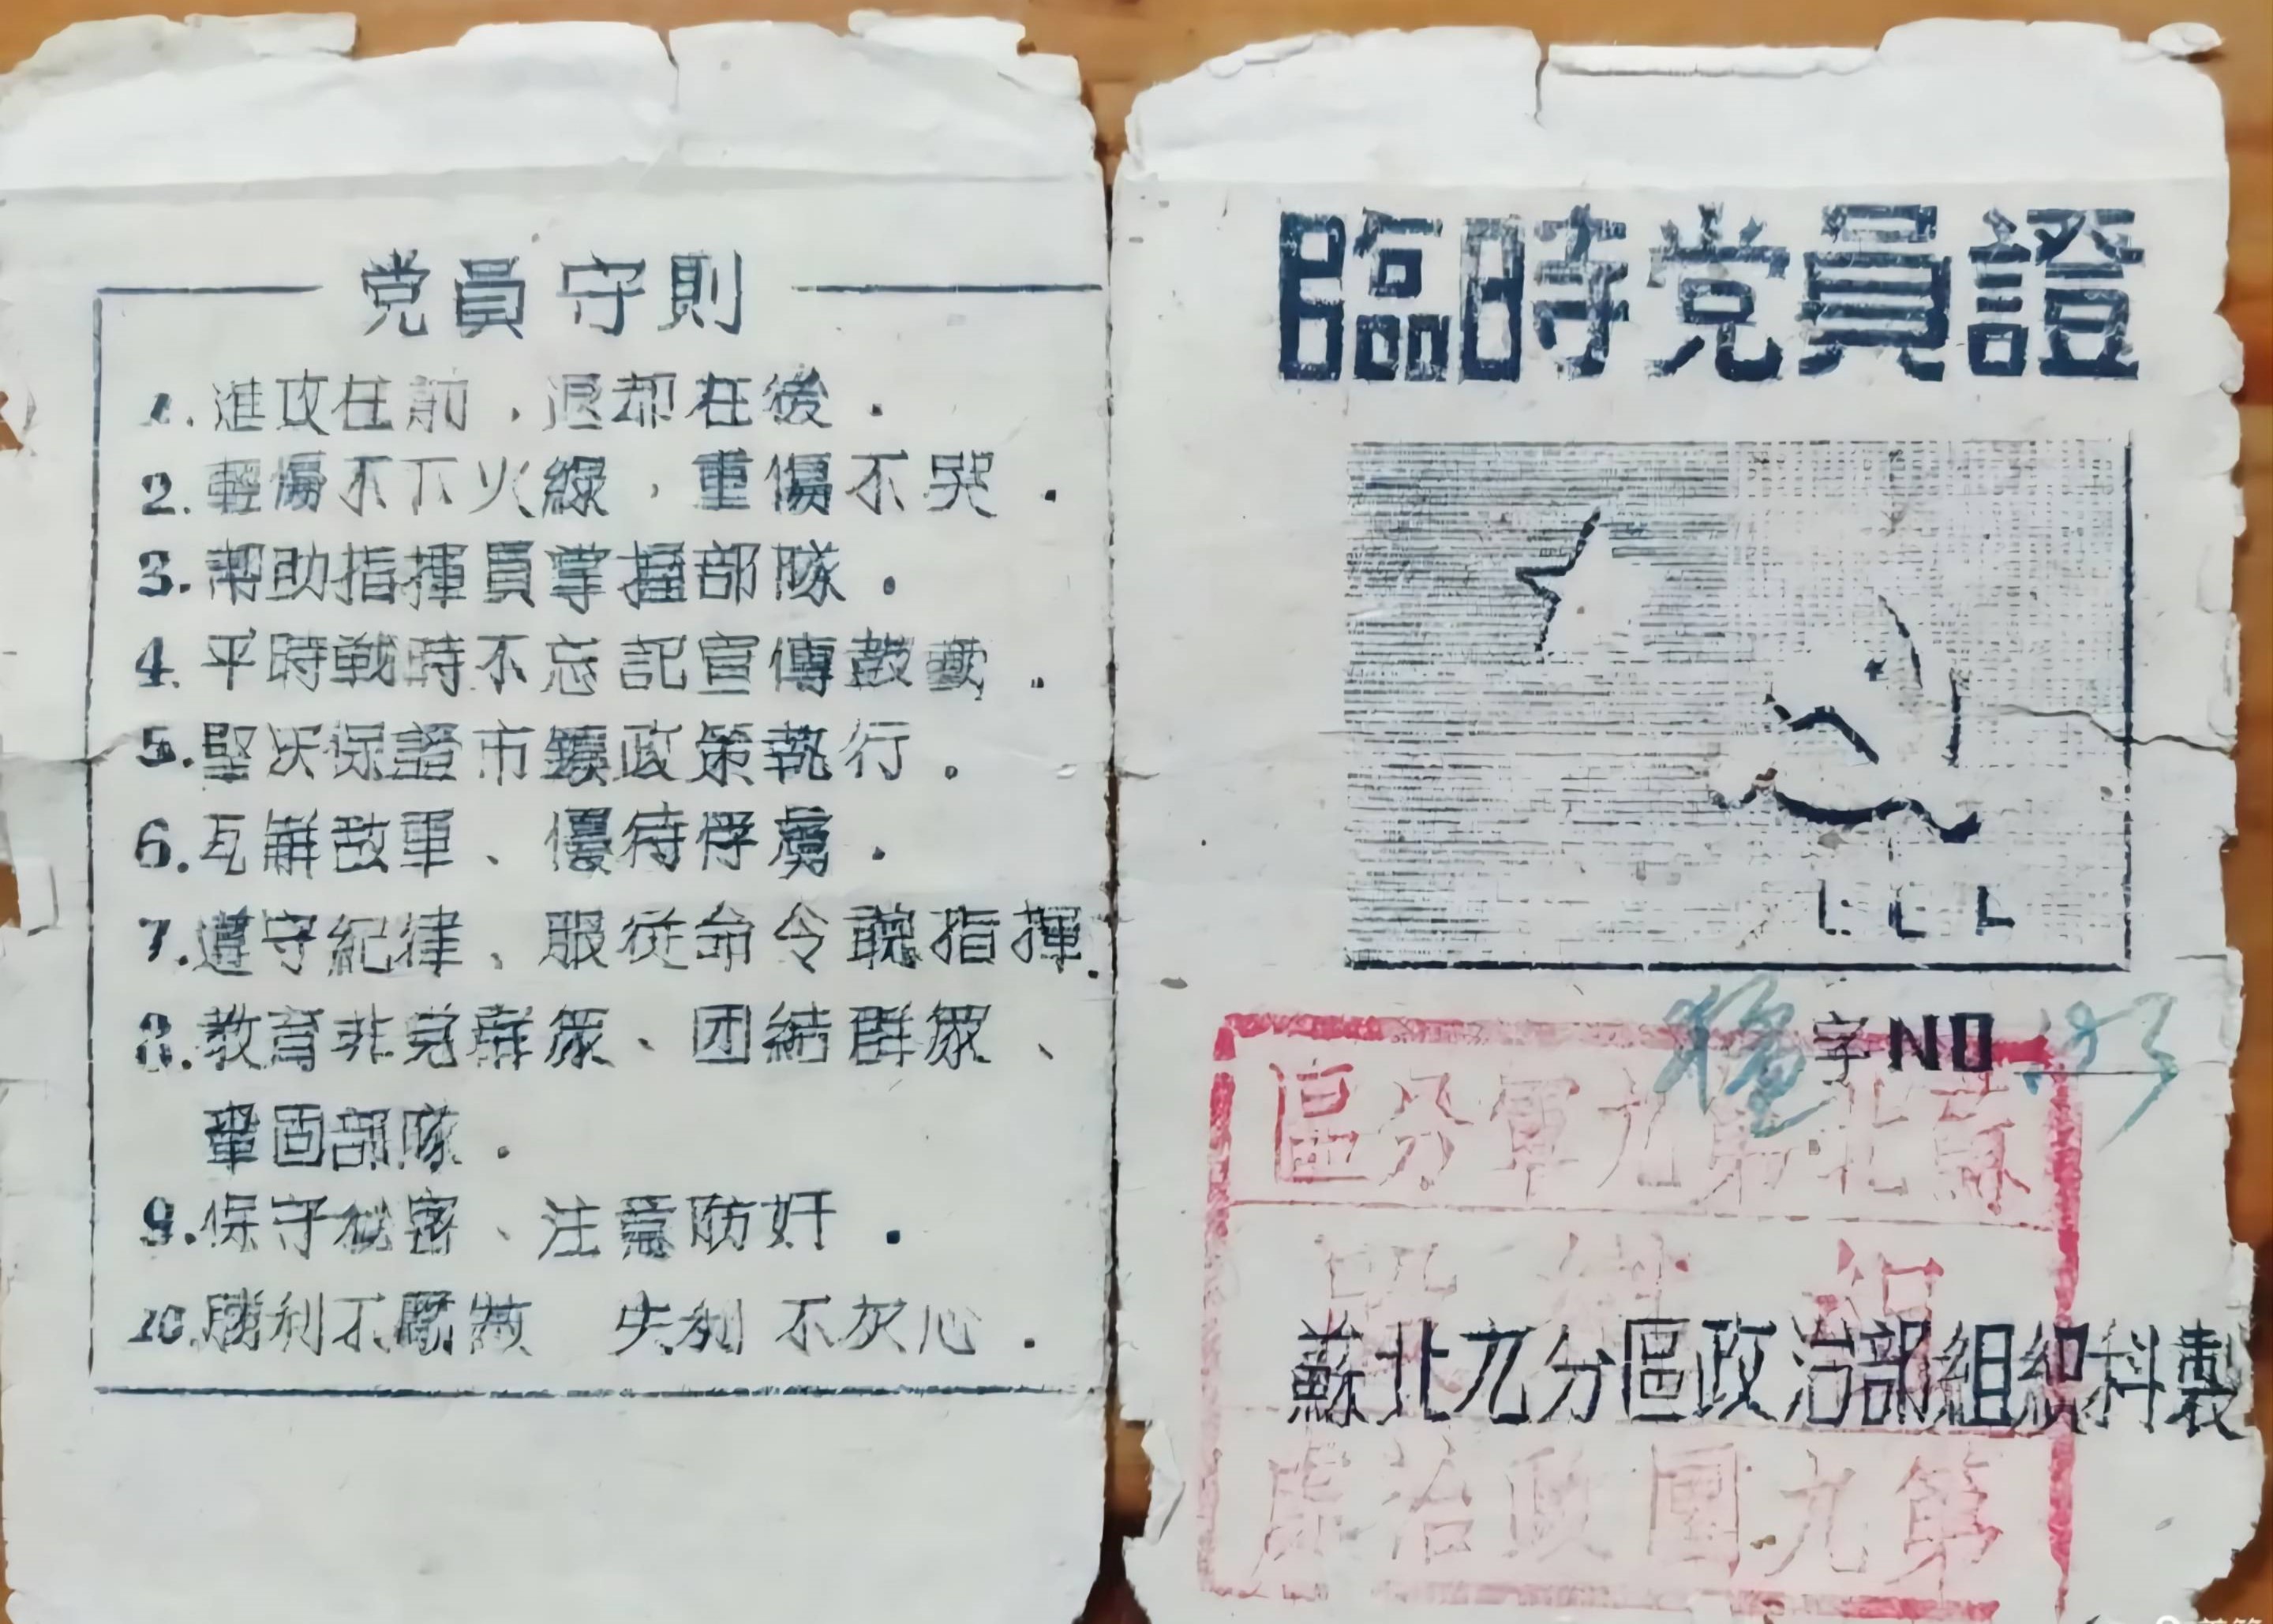 党員守則
1. 進攻在前，退却在後．
2. 輕傷不下火線，重傷不哭．
3. 幇助指揮員掌握部隊．
4. 平時戦時不忘記宣傳鼓動．
5. 堅决保證市鎮政策執行．
6. 瓦解敌軍、優待俘虜．
7. 遵守紀律、服從命令聽指揮．
8. 教育非党群衆、团結群衆、
鞏固部隊．
9. 保守秘密、注意防奸．
10. 勝利不驕傲 失利不灰心．
臨時党員證
字NO
區分軍九第北蘇
蘇北九分區政治部組織科製
處治政團九第